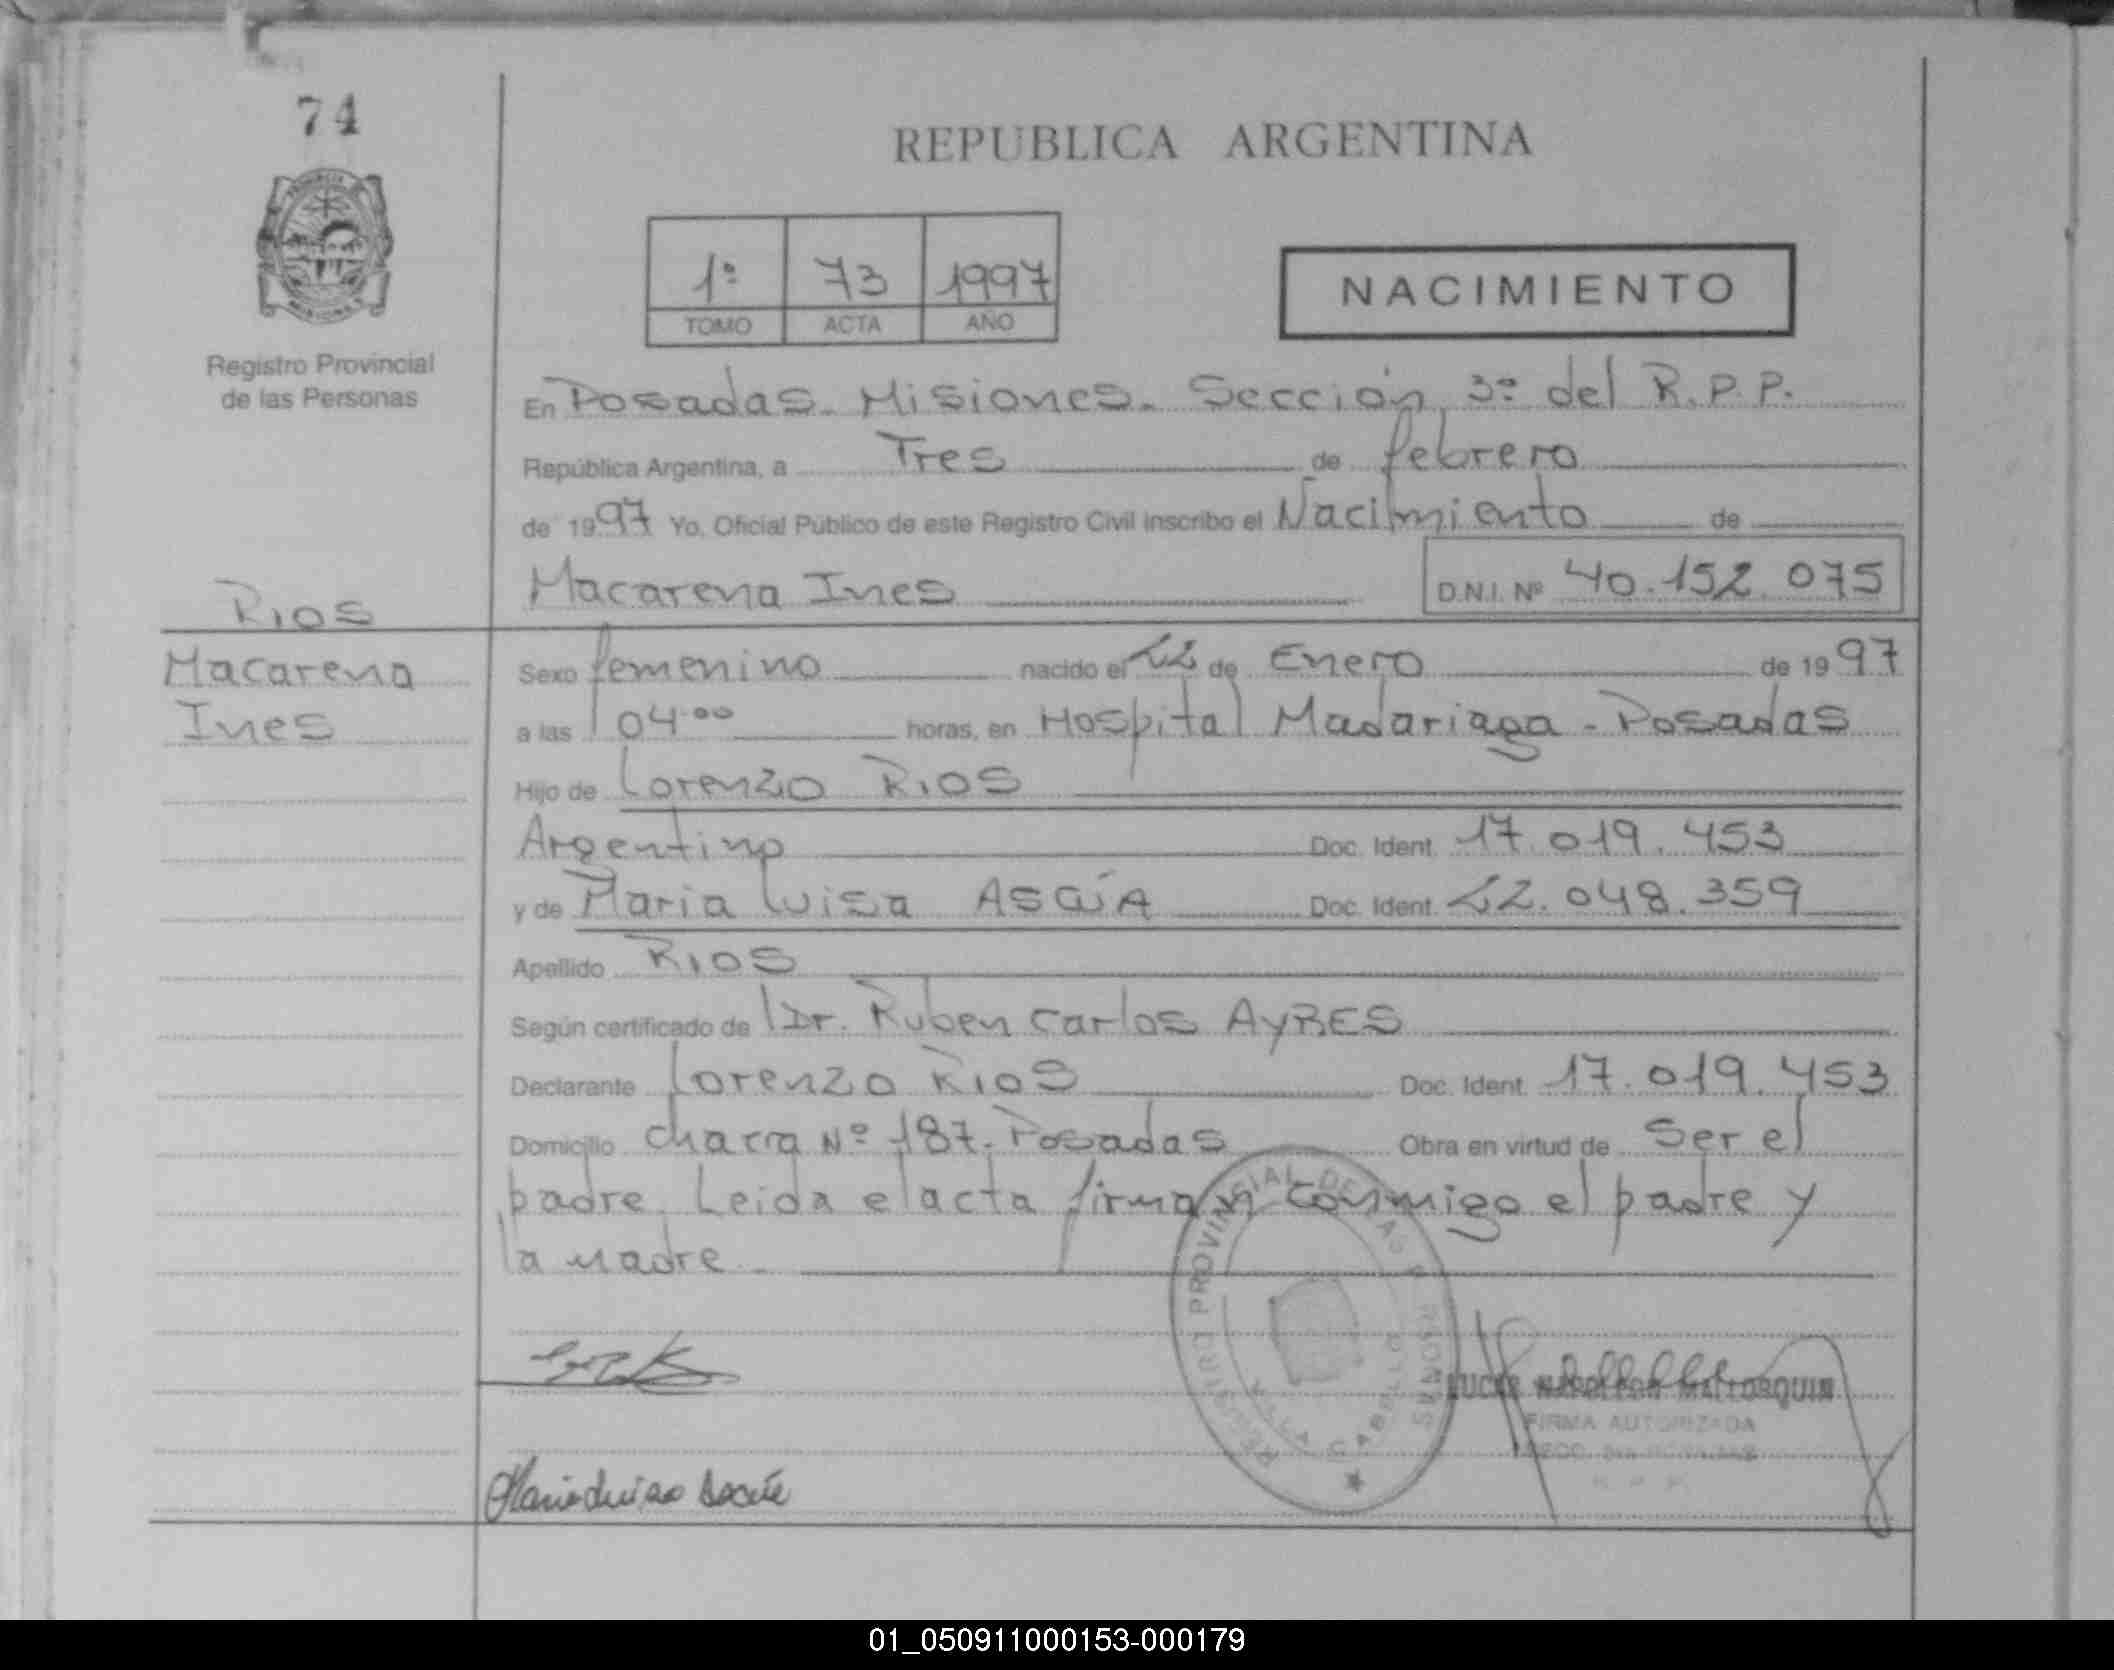 74
REPUBLICA ARGENTINA
1º 73 1997
TOMO ACTA AÑO
NACIMIENTO
Registro Provincial
de las Personas
En Posadas. Misiones. Sección 3º del R.P.P.
República Argentina, a Tres de febrero
de 1997 Yo, Oficial Público de este Registro Civil inscribo el Nacimiento de
Macarena Ines D.N.I. Nº 40.152.075
RIOS
Macarena
Ines
Sexo femenino nacido el 22 de Enero de 1997
a las 04.00 horas, en Hospital Madariaga - Posadas
Hijo de Lorenzo RIOS
Argentino Doc. Ident. 17.019.453
y de Maria Luisa Doc. Ident. 22.048.359
Apellido RIOS
Según certificado de Dr. Ruben Carlos AYRES
Declarante Lorenzo RIOS Doc. Ident. 17.019.453
Domicilio chacra Nº 187. Posadas Obra en virtud de Ser el
padre. Leida el acta firman conmigo el padre y
la madre
REGISTRO PROVINCIAL DE LAS PERSONAS
VILLA CABELLO
MALLORQUIN
FIRMA AUTORIZADA
Maria Luisa
01_050911000153-000179